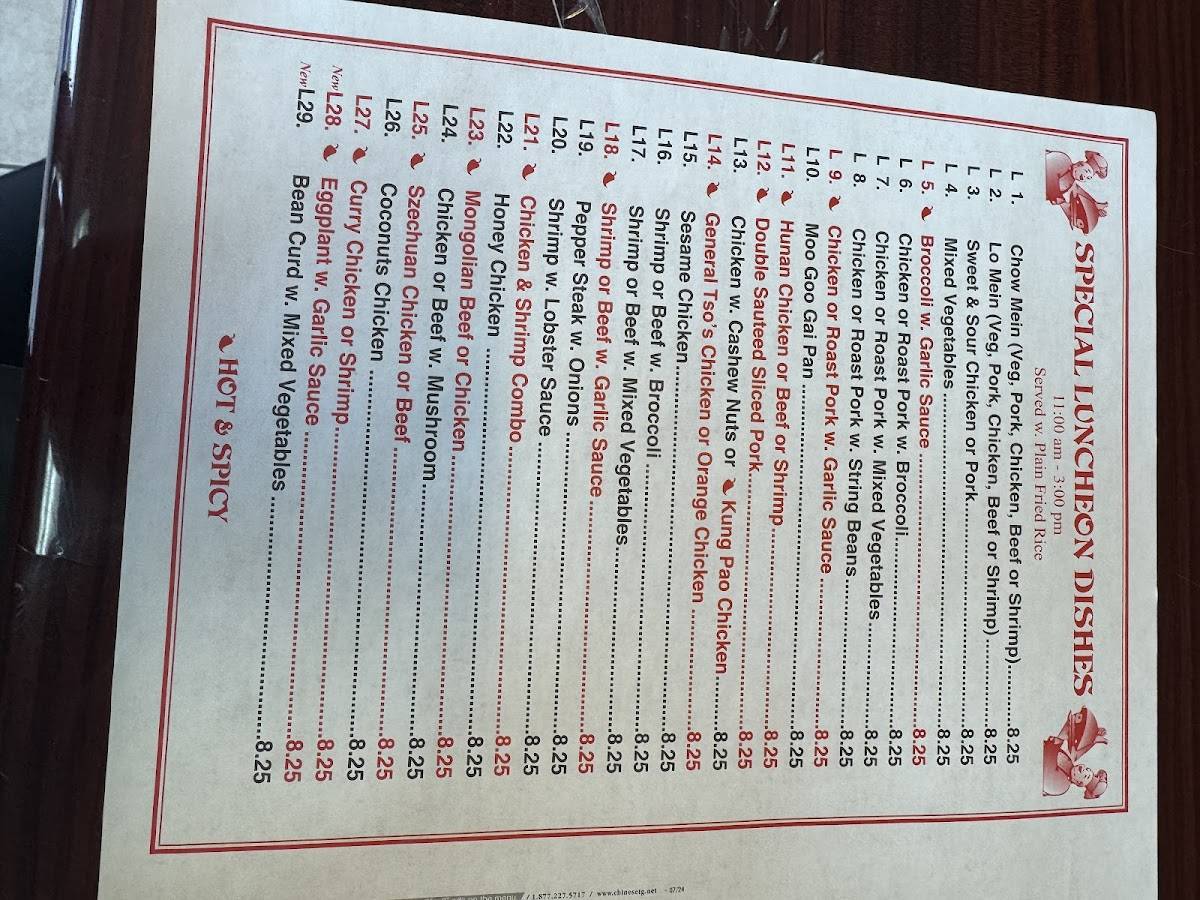 SPECIAL LUNCHEON DISHES
11:00 am - 3:00 pm
Served w. Plain Fried Rice
L 1. Chow Mein (Veg, Pork, Chicken, Beef or Shrimp)..........8.25
L 2. Lo Mein (Veg, Pork, Chicken, Beef or Shrimp)..........8.25
L 3. Sweet & Sour Chicken or Pork..........8.25
L 4. Mixed Vegetables..........8.25
L 5. Broccoli w. Garlic Sauce..........8.25
L 6. Chicken or Roast Pork w. Broccoli..........8.25
L 7. Chicken or Roast Pork w. Mixed Vegetables..........8.25
L 8. Chicken or Roast Pork w. String Beans..........8.25
L 9. Chicken or Roast Pork w. Garlic Sauce..........8.25
L10. Moo Goo Gai Pan..........8.25
L11. Hunan Chicken or Beef or Shrimp..........8.25
L12. Double Sauteed Sliced Pork..........8.25
L13. Chicken w. Cashew Nuts or Kung Pao Chicken..........8.25
L14. General Tso's Chicken or Orange Chicken..........8.25
L15. Sesame Chicken..........8.25
L16. Shrimp or Beef w. Broccoli..........8.25
L17. Shrimp or Beef w. Mixed Vegetables..........8.25
L18. Shrimp or Beef w. Garlic Sauce..........8.25
L19. Pepper Steak w. Onions..........8.25
L20. Shrimp w. Lobster Sauce..........8.25
L21. Chicken & Shrimp Combo..........8.25
L22. Honey Chicken..........8.25
L23. Mongolian Beef or Chicken..........8.25
L24. Chicken or Beef w. Mushroom..........8.25
L25. Szechuan Chicken or Beef..........8.25
L26. Coconuts Chicken..........8.25
L27. Curry Chicken or Shrimp..........8.25
New L28. Eggplant w. Garlic Sauce..........8.25
New L29. Bean Curd w. Mixed Vegetables..........8.25
HOT & SPICY
on the menu / 1.877.227.5717 / www.chinesetg.net - 07/24